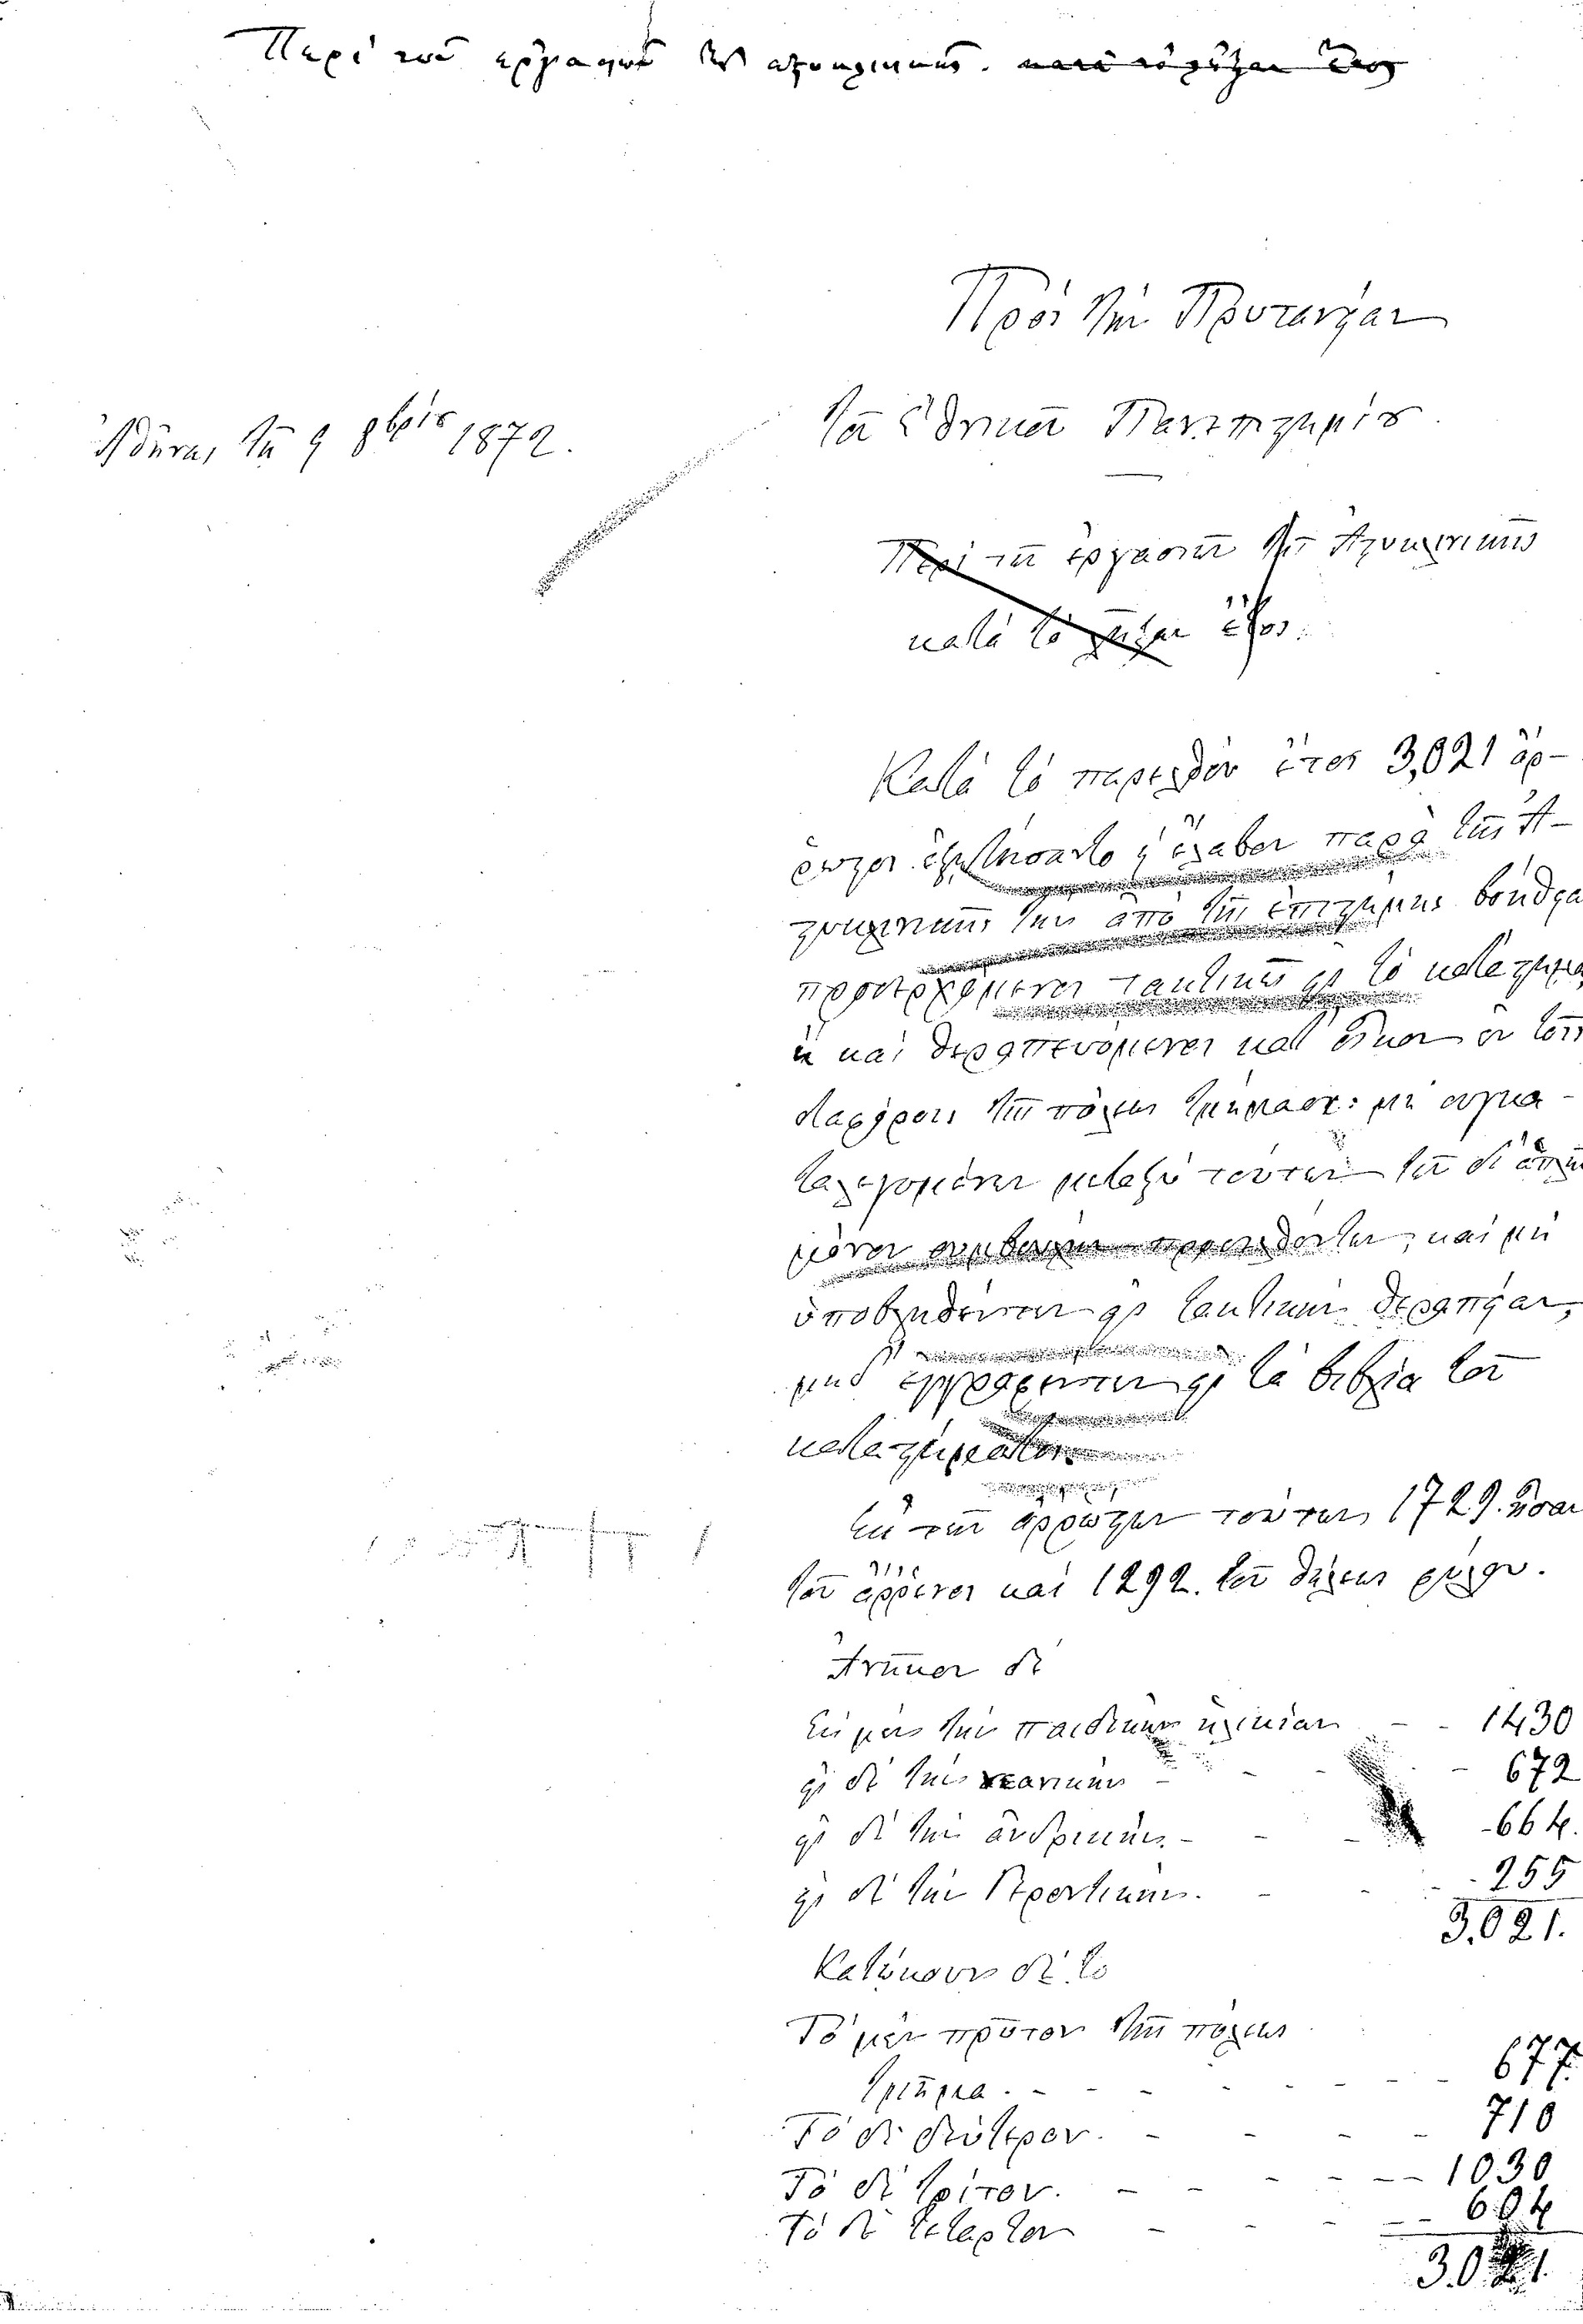 Περὶ τῶν ἐργασιῶν τῆς ἀστυκλινικῆς κατὰ τὸ λῆξαν ἔτος
Πρὸς τὴν Πρυτανείαν
τοῦ Ἐθνικοῦ Πανεπιστημίου
Ἀθῆναι τῇ 9 8βρίου 1872.
Περὶ τῶν ἐργασιῶν τῆς Ἀστυκλινικῆς
κατὰ τὸ λῆξαν ἔτος.
Κατὰ τὸ παρελθὸν ἔτος 3,021 ἄρ-
ρωστοι ἐζήτησαν τὸ ἔλαβον παρὰ τῆς Ἀ-
στυκλινικῆς τὴν ἀπὸ τῆς ἐπιστήμης βοήθεια
προσερχόμενοι τακτικῶς εἰς τὸ κατάστημα,
ἢ καὶ θεραπευόμενοι κατ' οἶκον ἐν τοῖς
διαφόροις τῆς πόλεως τμήμασι: μὴ συγκα-
ταλεγομένων μεταξὺ τούτων τῶν δι' ἁπλῆν
μόνον συμβουλὴν προσελθόντων, καὶ μὴ
ὑποβληθέντων εἰς τακτικὴν θεραπείαν,
μηδ' ἐγγραφέντων εἰς τὰ βιβλία τοῦ
καταστήματος.
Ἐκ τῶν ἀρρώστων τούτων, 1729. ἦσαν
τοῦ ἄρρενος καὶ 1292. τοῦ θήλεως φύλου.
Ἀνῆκον δὲ
Εἰς μὲν τὴν παιδικὴν ἡλικίαν - - 1430
εἰς δὲ τὴν νεανικὴν - - - - 672
εἰς δὲ τὴν ἀνδρικὴν. - - - -664.
εἰς δὲ τὴν γεροντικὴν. - - - - 255
3.021.
Κατῴκουν δὲ τὸ
Τὸ μὲν πρῶτον τῆς πόλεως
τμῆμα. - - - - - - - 677.
Τὸ δὲ δεύτερον. - - - - 710
Τὸ δὲ τρίτον. - - - - - - 1030
Τὸ δὲ τέταρτον - - - - - 604
3.021.